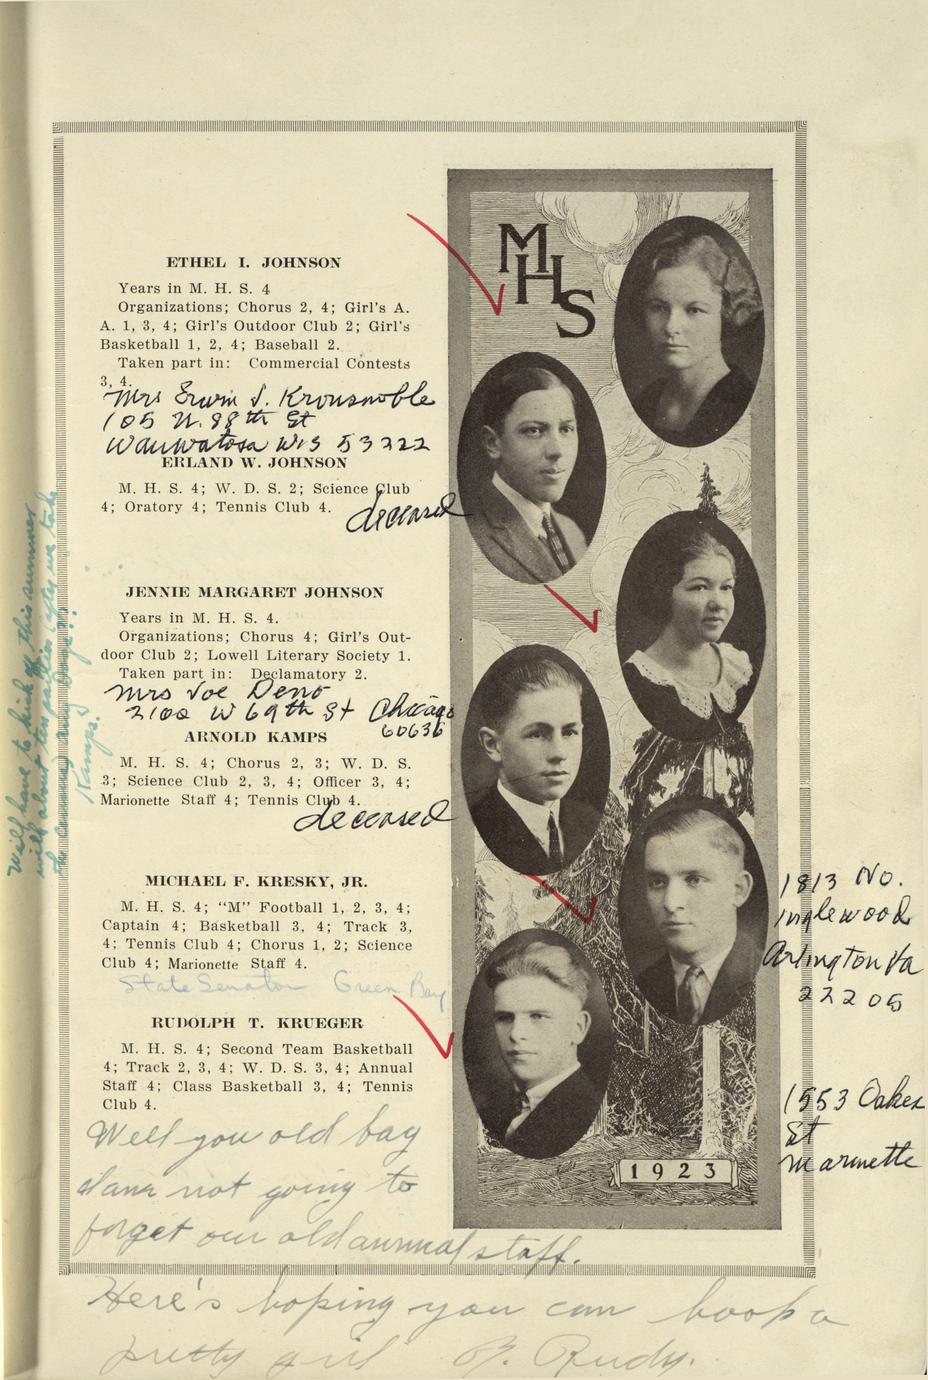 MHS
ETHEL I. JOHNSON
Years in M. H. S. 4
Organizations; Chorus 2, 4; Girl's A.
A. 1, 3, 4; Girl's Outdoor Club 2; Girl's
Basketball 1, 2, 4; Baseball 2.
Taken part in: Commercial Contests
3, 4.
Mrs Erwin J. Krousnoble
105 N. 98th St
Wauwatosa Wis 53222
ERLAND W. JOHNSON
M. H. S. 4; W. D. S. 2; Science Club
4; Oratory 4; Tennis Club 4.
deceased
JENNIE MARGARET JOHNSON
Years in M. H. S. 4.
Organizations; Chorus 4; Girl's Out-
door Club 2; Lowell Literary Society 1.
Taken part in: Declamatory 2.
Mrs Joe Deno
2102 W 69th St Chicago
60636
ARNOLD KAMPS
M. H. S. 4; Chorus 2, 3; W. D. S.
3; Science Club 2, 3, 4; Officer 3, 4;
Marionette Staff 4; Tennis Club 4.
deceased
MICHAEL F. KRESKY, JR.
M. H. S. 4; "M" Football 1, 2, 3, 4;
Captain 4; Basketball 3, 4; Track 3,
4; Tennis Club 4; Chorus 1, 2; Science
Club 4; Marionette Staff 4.
State Senator Green Bay
1813 No.
Inglewood
Arlington Va
22205
RUDOLPH T. KRUEGER
M. H. S. 4; Second Team Basketball
4; Track 2, 3, 4; W. D. S. 3, 4; Annual
Staff 4; Class Basketball 3, 4; Tennis
Club 4.
1553 Oakes
St
Marinette
1923
Well you old
not going to
forget our old annual staff.
Here's hoping you can hook a
pretty girl Rudy.
Will have to kick off this summer
with about ten parties
the any
Kamps.